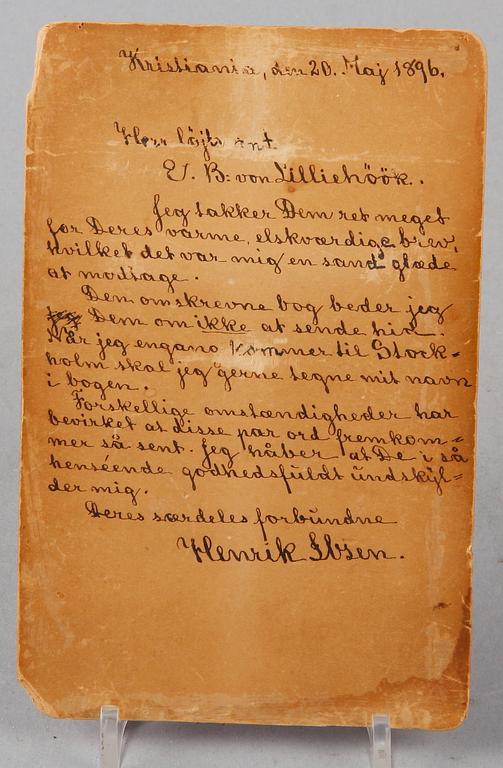 Kristiania, den 20. Maj 1896.
Herr löjtnant
E. B: von Lilliehöök.
Jeg takker Dem ret meget
for Deres varme, elskværdige brev,
hvilket det var mig en sand glæde
at modtage.
Den omskrevne bog beder jeg
Dem om ikke at sende hid.
Når jeg engang kommer til Stock-
holm skal jeg gerne tegne mit navn
i bogen.
Forskellige omstændigheder har
bevirket at disse par ord fremkom-
mer så sent. Jeg håber at De i så
henséende godhedsfuldt undskyl-
der mig.
Deres særdeles forbundne
Henrik Ibsen.